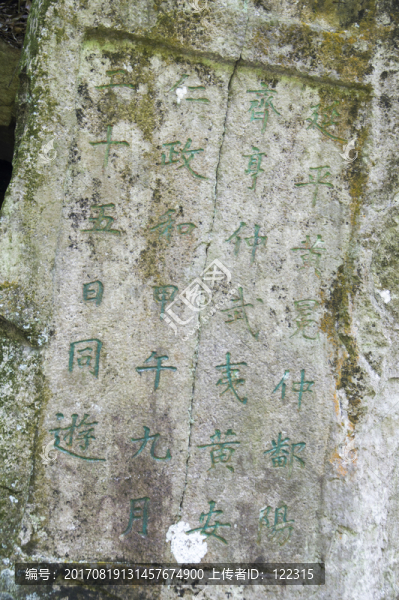 延平黃冕仲鄱陽
齊亨仲武夷黃安
仁政和甲午九月
二十五日同遊
编号:20170819131457674900 上传者ID:122315